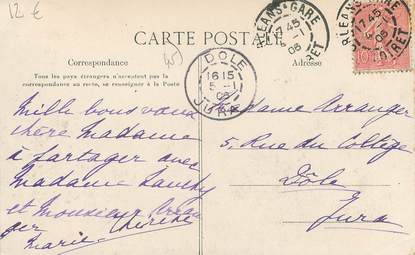 12 €
CARTE POSTALE
Correspondance
Tous les pays étrangers n'acceptent pas la
correspondance au recto, se renseigner à la Poste
Mille bons vœux
chère Madame
à partager avec
Madame
et Monsieur Arran
ger
Marie Thérèse
Adresse
ORLEANS-GARE
17 45
5 -1
06
LOIRET
ORLEANS-GARE
17 45
5 -1
06
LOIRET
10
DOLE
16 15
5 -1
06
JURA
Madame Arranger
5, Rue du Collège
Dôle
Jura